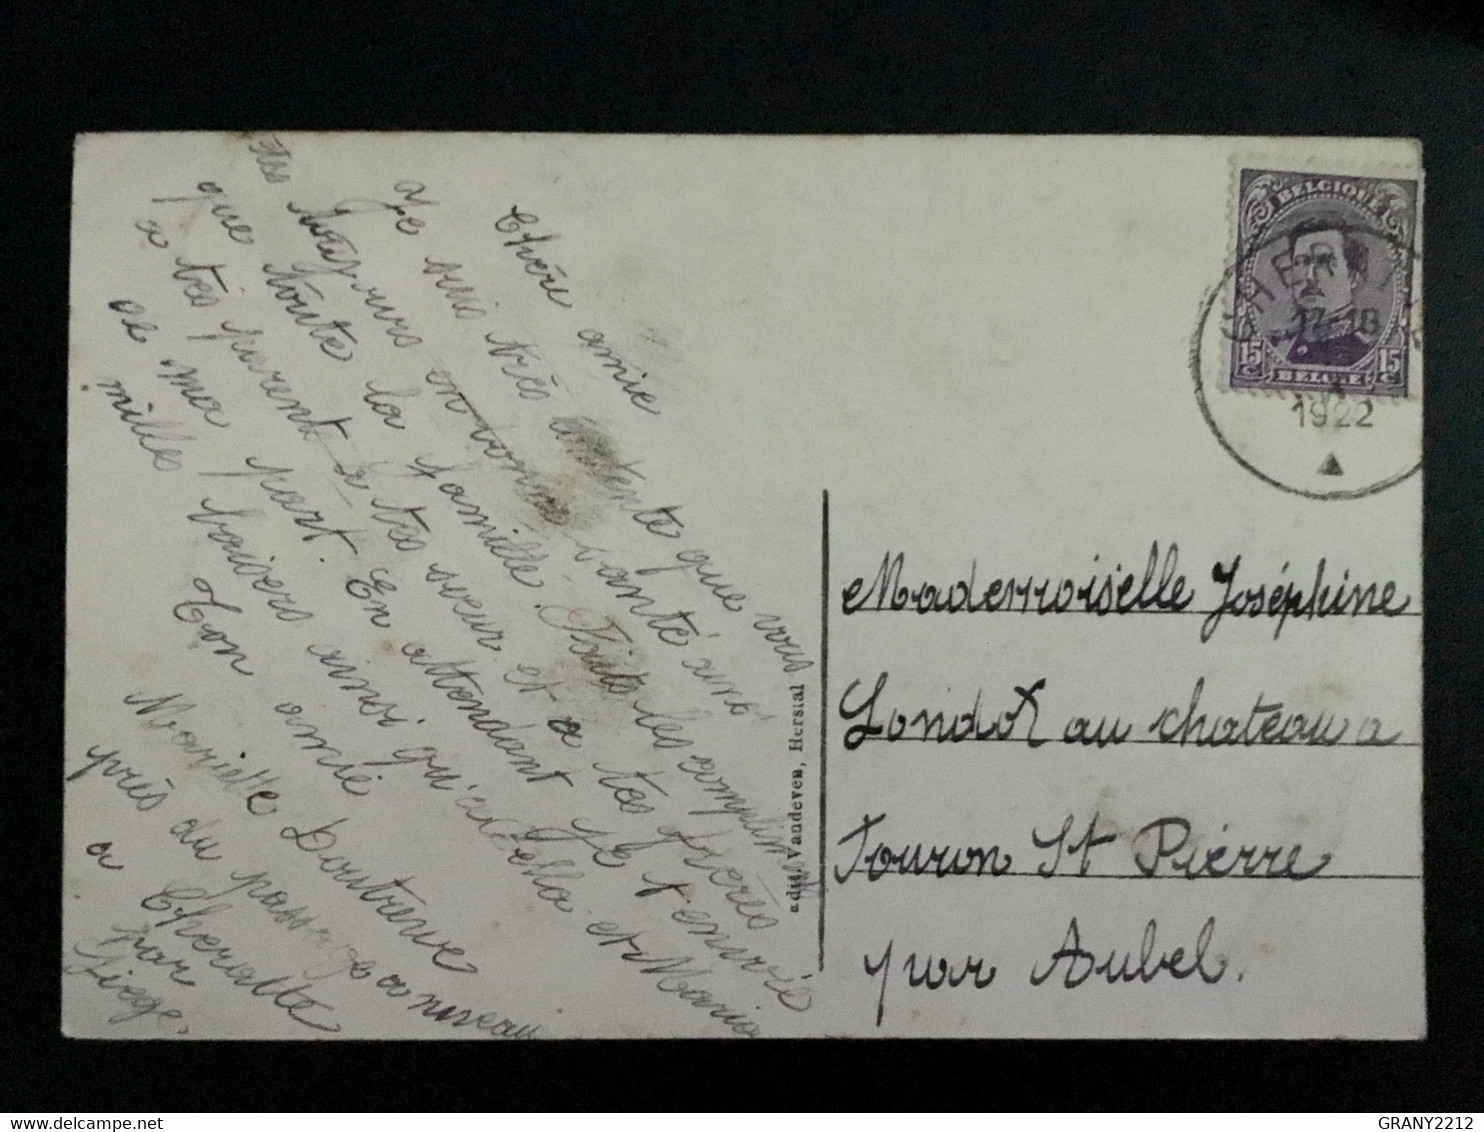 Chère amie
Je suis très contente que vous
êtes toujours en bonne santé ainsi
que toute la famille. Faite les compliments
a tes parent a tes soeur et a tes frères
de ma part. En attendant Je t'envoie
milles baisers ainsi qu'a et Maria
Ton amie
Mariette Doutrewe
près du passage a niveau
a Cheratte
par
Liege.
edit. Vandeven, Herstal
BELGIQUE
15 C 15 C
BELGIE
CHERATTE
17-18
1922
Mademoiselle Joséphine
Londot au chateau a
Fouron St Pierre
par Aubel.
GRANY2212